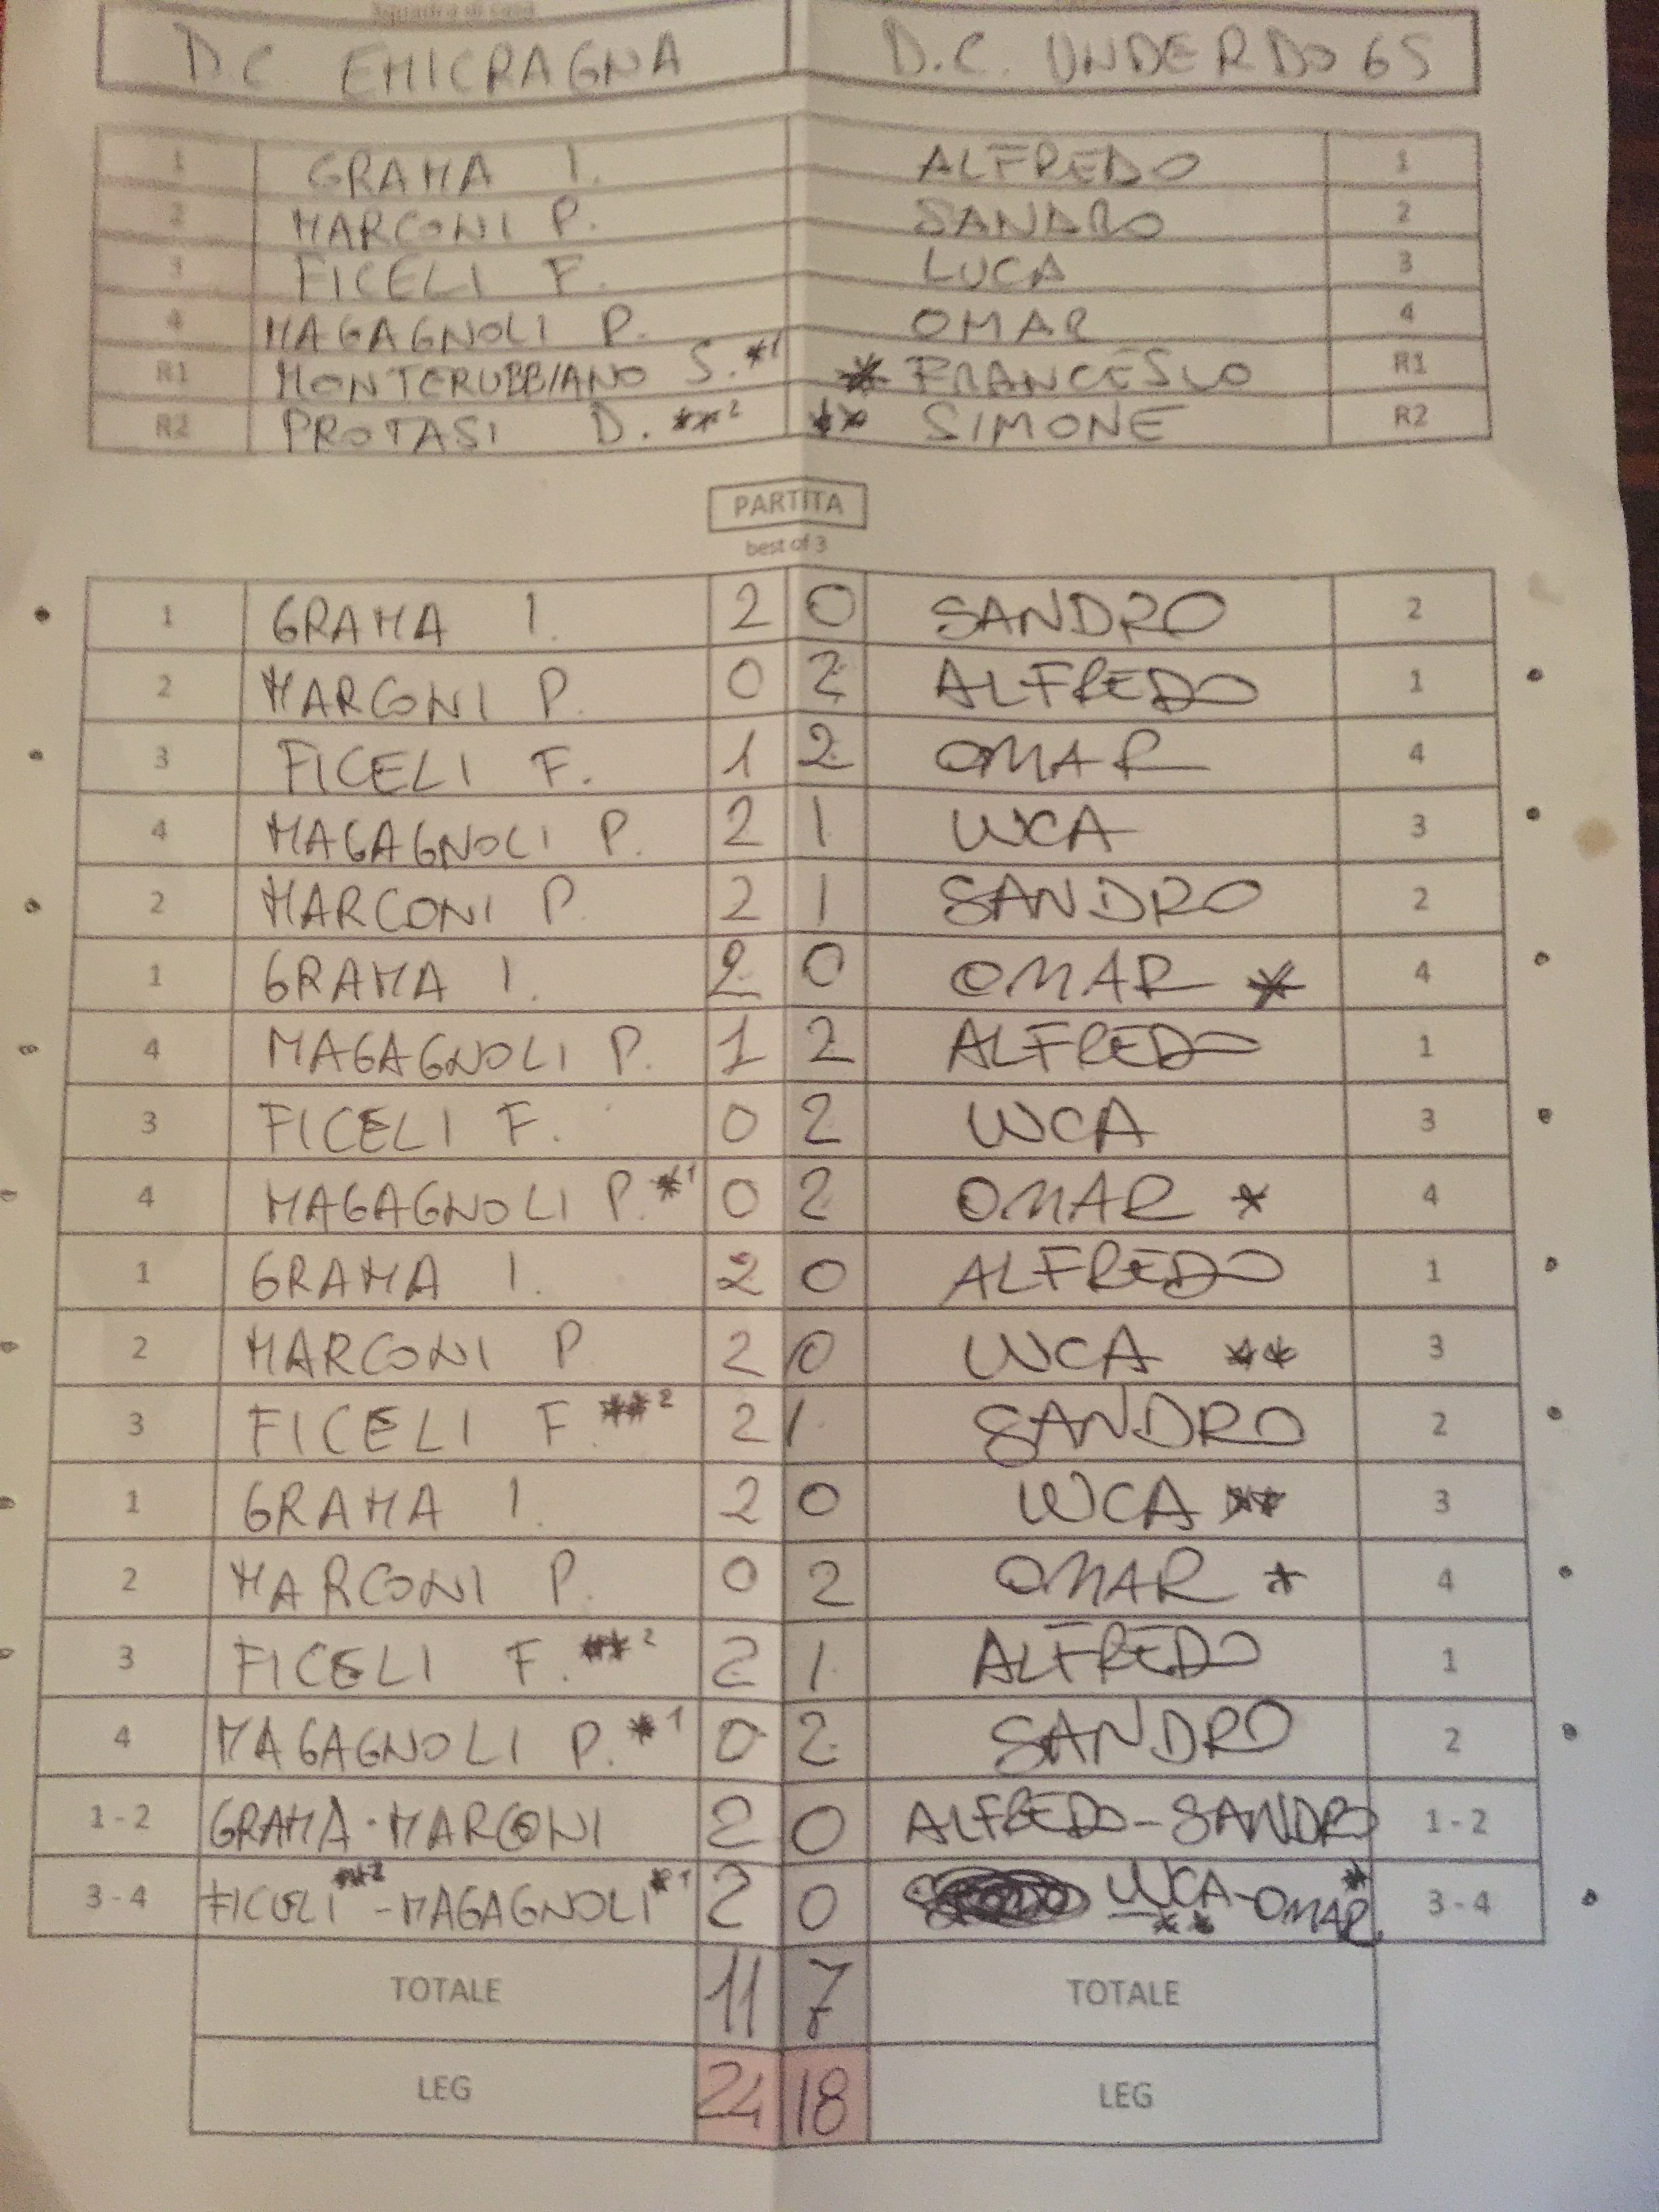 Squadra di casa
D.C EMICRAGNA D.C. UNDERDO 65
1 GRAMA I. ALFREDO 1
2 MARCONI P. SANDRO 2
3 FICELI F. LUCA 3
4 MAGAGNOLI P. OMAR 4
R1 MONTERUBBIANO S. *1 * FRANCESCO R1
R2 PROTASI D. **2 ** SIMONE R2
PARTITA
best of 3
1 GRAMA I. 2 0 SANDRO 2
2 MARCONI P. 0 2 ALFREDO 1
3 FICELI F. 1 2 OMAR 4
4 MAGAGNOLI P. 2 1 LUCA 3
2 MARCONI P. 2 1 SANDRO 2
1 GRAMA I. 2 0 OMAR * 4
4 MAGAGNOLI P. 1 2 ALFREDO 1
3 FICELI F. 0 2 LUCA 3
4 MAGAGNOLI P. *1 0 2 OMAR * 4
1 GRAMA I. 2 0 ALFREDO 1
2 MARCONI P 2 0 LUCA ** 3
3 FICELI F. **2 2 1 SANDRO 2
1 GRAMA I. 2 0 LUCA ** 3
2 MARCONI P. 0 2 OMAR * 4
3 FICELI F. **2 2 1 ALFREDO 1
4 MAGAGNOLI P. *1 0 2 SANDRO 2
1-2 GRAMA-MARCONI 2 0 ALFREDO-SANDRO 1-2
3-4 FICELI **2 -MAGAGNOLI *1 2 0 LUCA ** -OMAR * 3-4
TOTALE 11 7 TOTALE
LEG 24 18 LEG